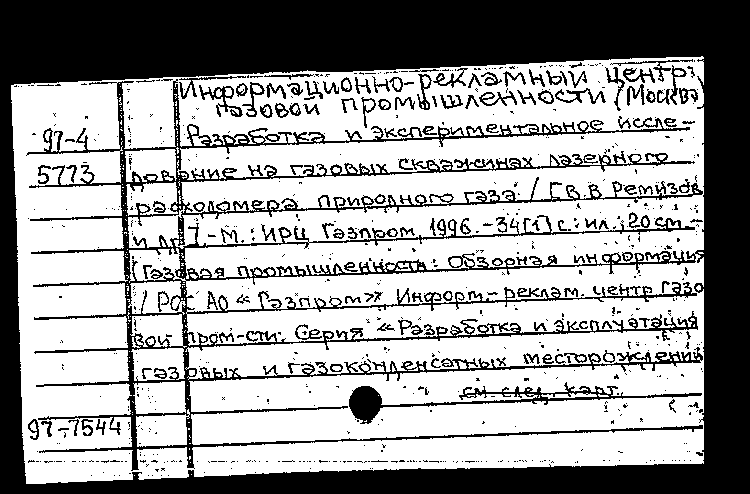 Информационно-рекламный центр
газовой промышленности (Москва)
97-4 Разработка и экспериментальное иссле-
5773 дование на газовых скважинах лазерного
расходомера природного газа / [В. В. Ремизов
и др.]. - М. : ИРЦ Газпром, 1996. - 34[1] с. : ил. ; 20 см. -
(Газовая промышленность: Обзорная информация
/ Рос. АО «Газпром», Информ.-реклам. центр газо
вой пром-сти. Серия «Разработка и эксплуатация
газовых и газоконденсатных месторождений
см. след. карт.
97-7544